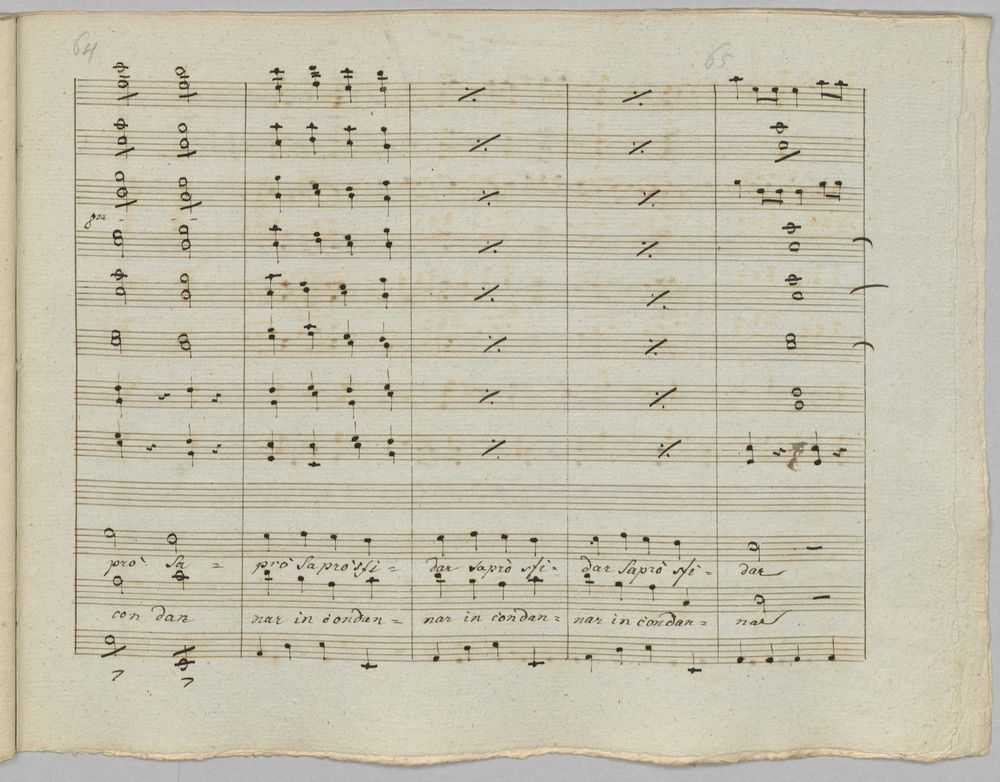 64 65
8va
prò sa = prò saprò sfi = dar saprò sfi = dar saprò sfi = dar
con dan nar in condan = nar in condan = nar in condan = nar